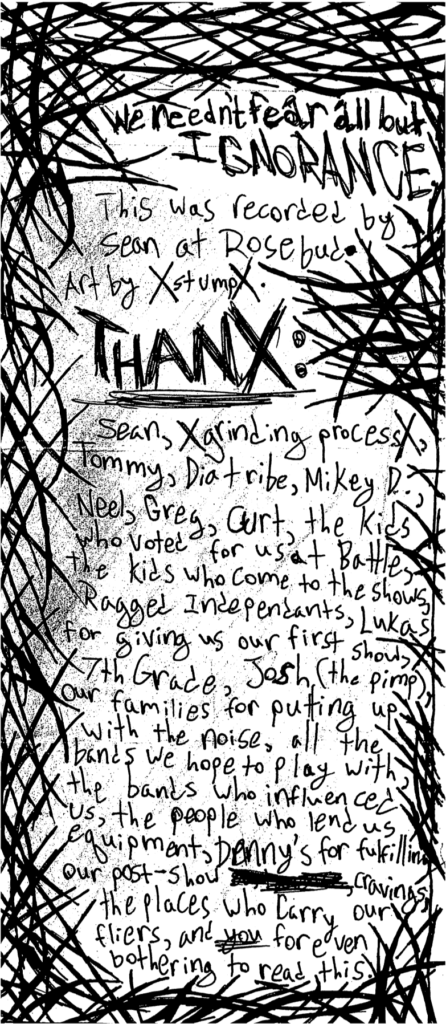 We needn't fear all but
IGNORANCE
This was recorded by
Sean at Rosebud.
Art by XstumpX.
THANX:
Sean, Xgrinding processX,
Tommy, Diatribe, Mikey D.,
Neel, Greg, Curt, the kids
who voted for us at Battle,
the kids who come to the shows,
Ragged Independants, Lukas
for giving us our first show,
7th Grade, Josh, (the pimp),
our families for putting up
with the noise, all the
bands we hope to play with,
the bands who influenced
us, the people who lend us
equipment, Denny's for fulfilling
our post-show cravings,
the places who carry our
fliers, and you for even
bothering to read this.